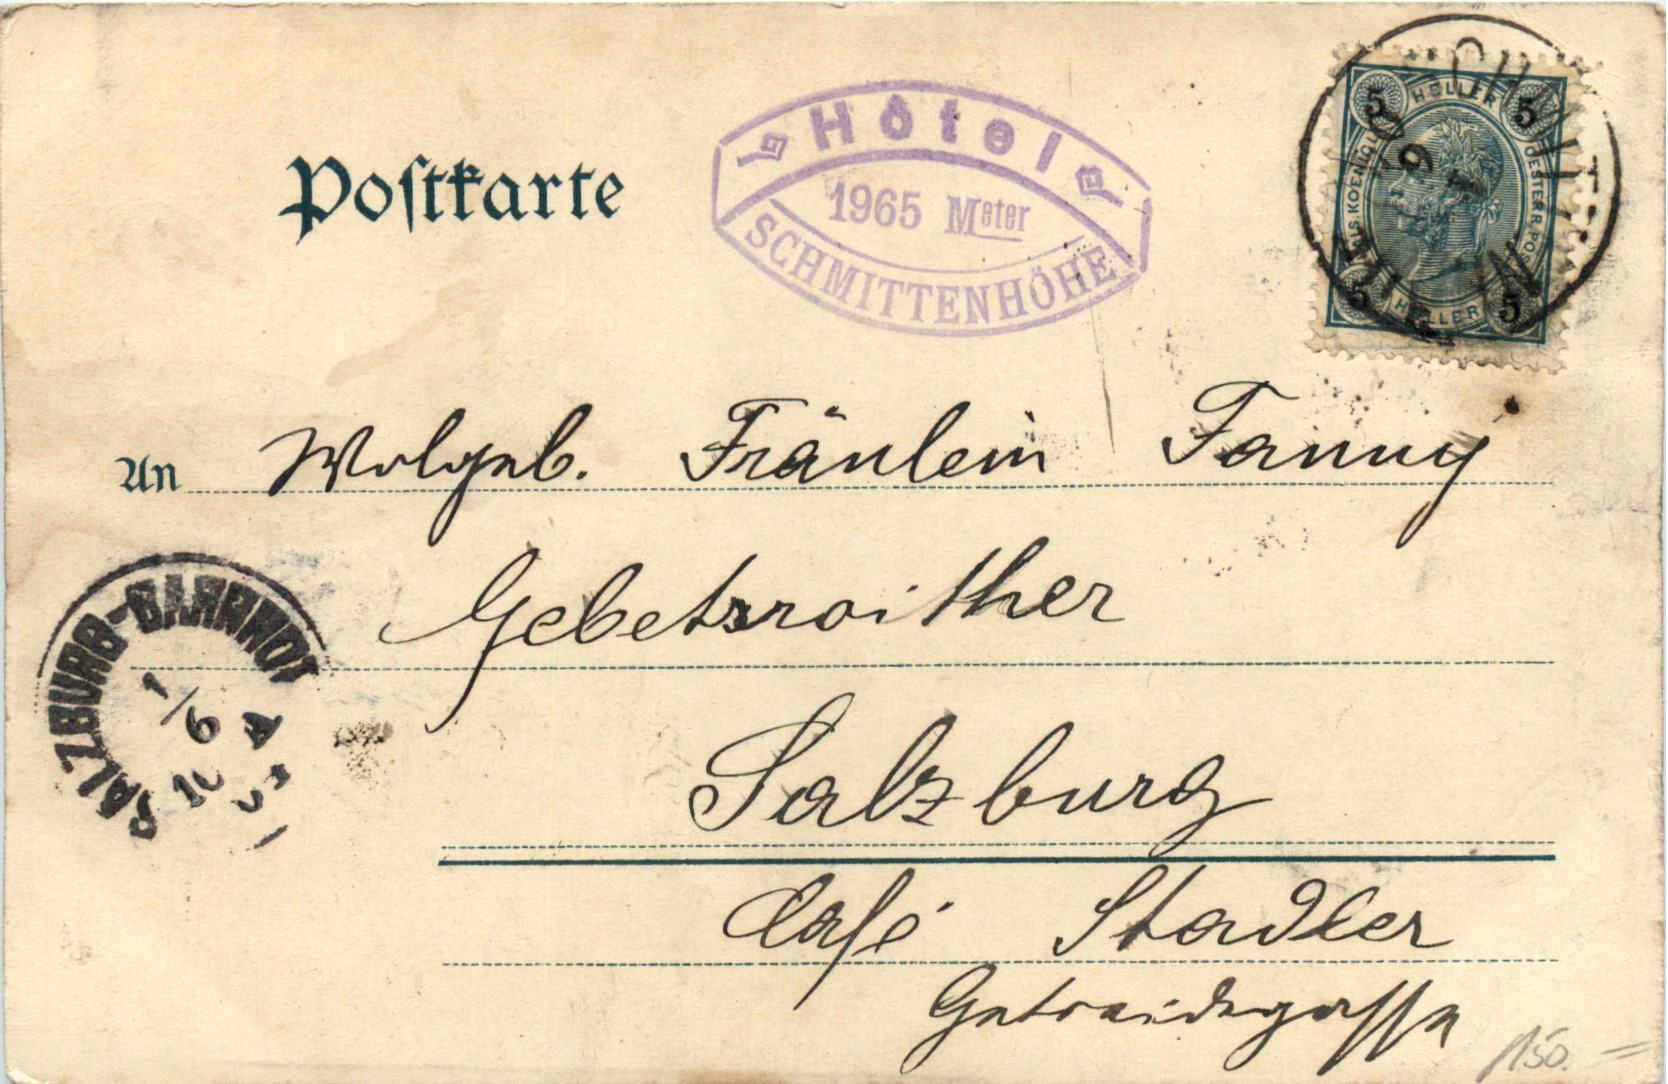 Postkarte
Hôtel
1965 Meter
SCHMITTENHÖHE
5 HELLER 5
KAIS. KOENIGL. OESTERR. POST
5 HELLER 5
An Wolgeb. Fräulein Fanny
Gebetsroither
SALZBURG-BAHNHOF
1/6
Salzburg
Café Stadler
Getreidegasse
150.-